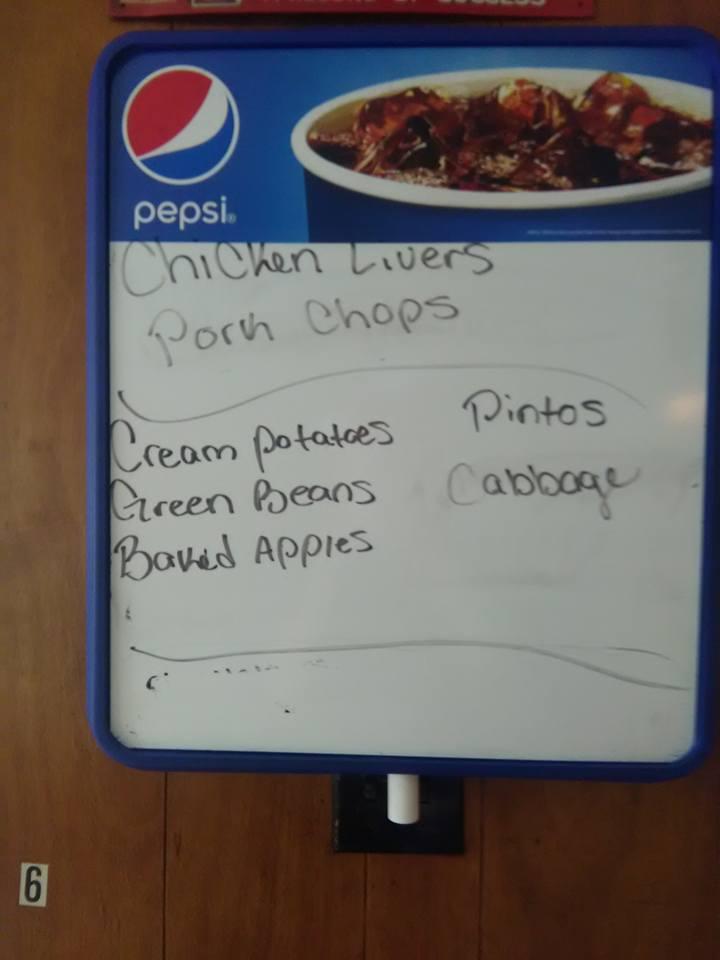 pepsi®
Chicken Livers
Pork Chops
Cream potatoes
Green Beans
Baked Apples
Pintos
Cabbage
6